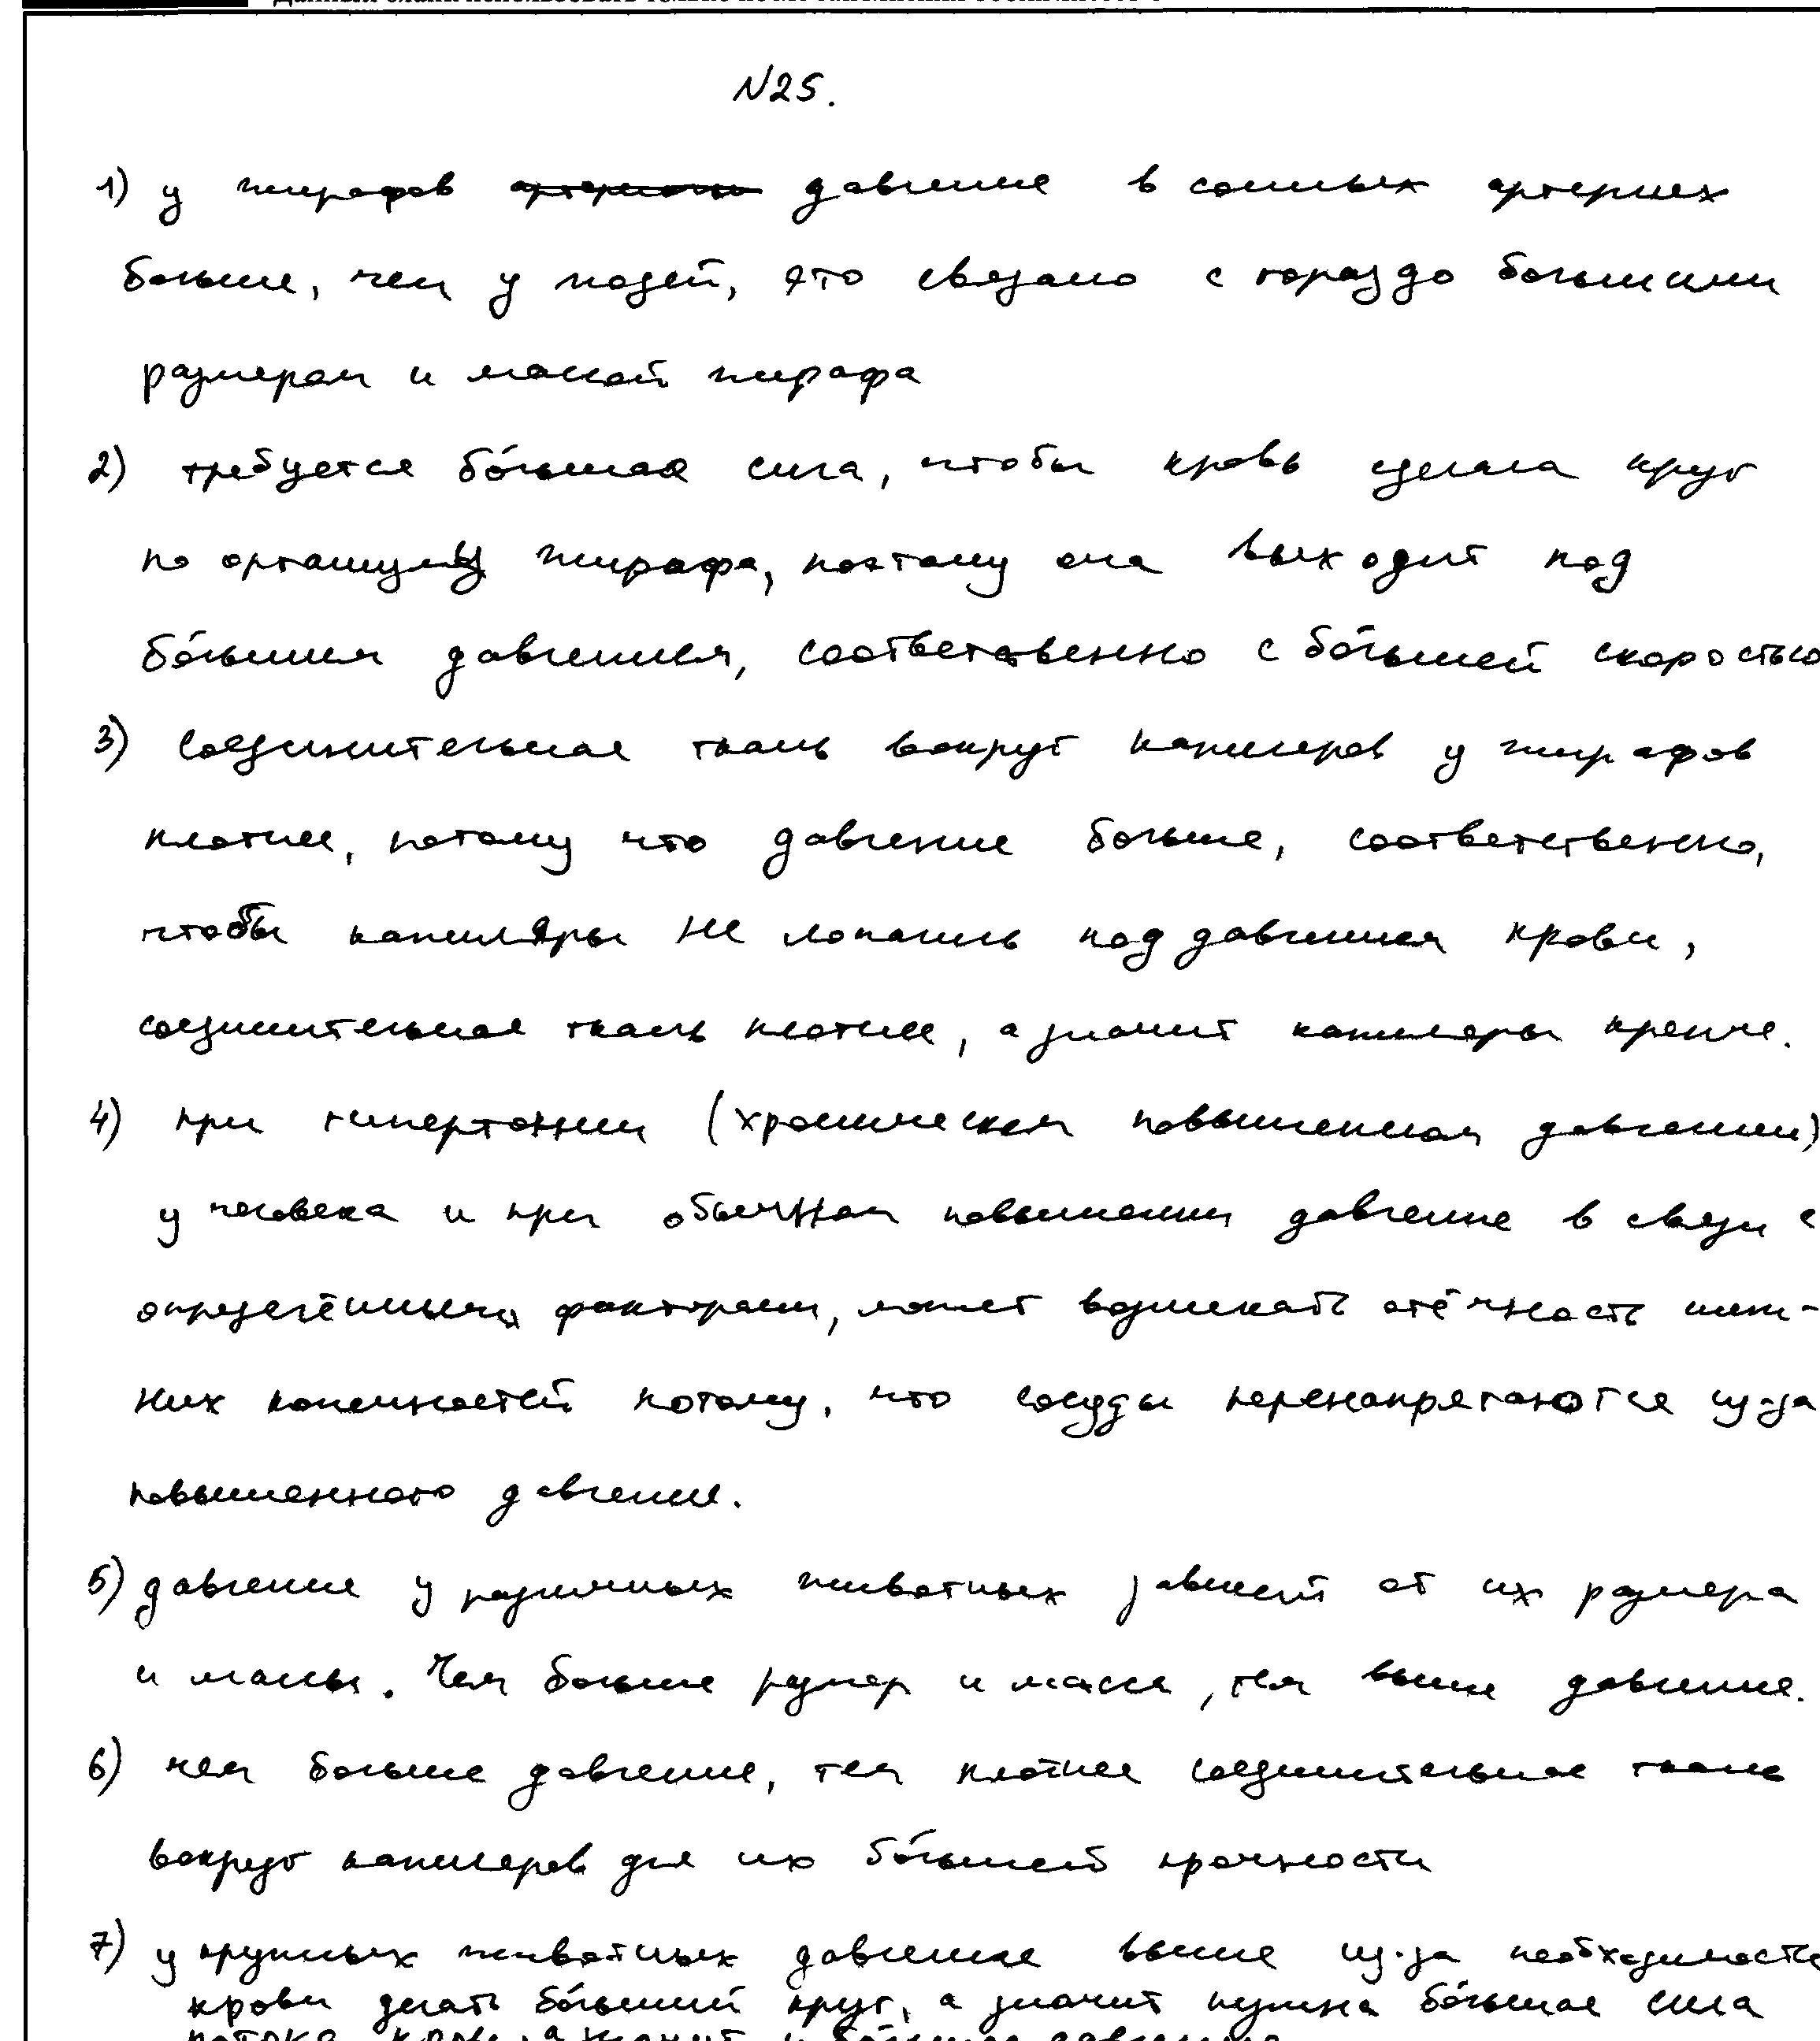 N25.
1) у жирафов давление в сонных артериях
больше, чем у людей, это связано с гораздо большими
размером и массой жирафа
2) требуется бо́льшая сила, чтобы кровь сделала круг
по организму жирафа, поэтому она выходит под
бо́льшим давлением, соответственно с бо́льшей скоростью
3) соединительная ткань вокруг капиляров у жирафов
плотнее, потому что давление больше, соответственно,
чтобы капиляры не лопались под давлением крови,
соединительная ткань плотнее, а значит капиляры крепче.
4) при гипертонии (хроническом повышенном давлении)
у человека и при обычном повышении давление в связи с
определёнными факторами, может возникать отёчность ниж-
них конечностей потому, что сосуды перенапрягаются из-за
повышенного давления.
5) давление у различных животных зависит от их размера
и массы. Чем больше размер и масса, тем выше давление.
6) чем больше давление, тем плотнее соединительная ткань
вокруг капиляров для их бо́льшей прочности
7) у крупных животных давление выше из-за необходимости
крови делать бо́льший круг, а значит нужна бо́льшая сила
потока крови, а значит и бо́льшее давление